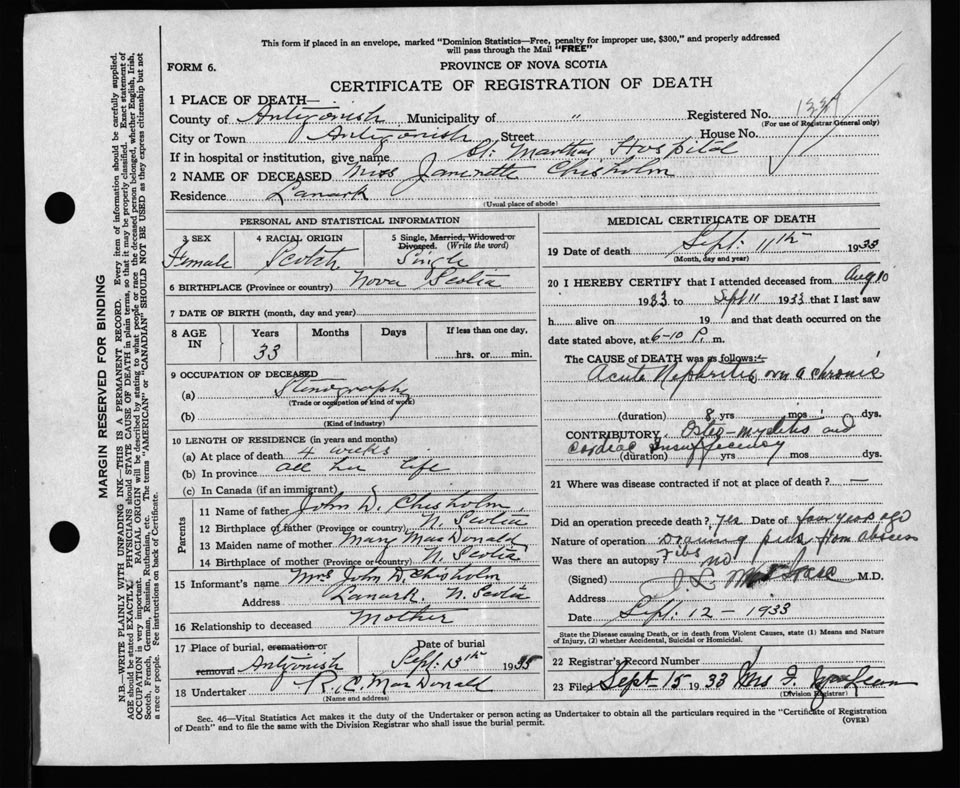 This form if placed in an envelope, marked "Dominion Statistics—Free, penalty for improper use, $300," and properly addressed
will pass through the Mail "FREE"
FORM 6.
PROVINCE OF NOVA SCOTIA
CERTIFICATE OF REGISTRATION OF DEATH
1 PLACE OF DEATH—
County of Antigonish Municipality of " Registered No.
(For use of Registrar General only)
City or Town Antigonish Street House No.
If in hospital or institution, give name St. Marthas Hospital
2 NAME OF DECEASED Miss Chisholm
Residence Lanark
(Usual place of abode)
PERSONAL AND STATISTICAL INFORMATION
3 SEX 4 RACIAL ORIGIN 5 Single, Married, Widowed or
Divorced. (Write the word)
Female Scotch Single
6 BIRTHPLACE (Province or country) Nova Scotia
7 DATE OF BIRTH (month, day and year)
8 AGE IN Years Months Days If less than one day,
33 hrs. or min.
9 OCCUPATION OF DECEASED
(a) Stenography
(Trade or occupation or kind of work)
(b)
(Kind of industry)
10 LENGTH OF RESIDENCE (in years and months)
(a) At place of death 4 weeks
(b) In province all her life
(c) In Canada (if an immigrant)
Parents
11 Name of father John D. Chisholm
12 Birthplace of father (Province or country) N. Scotia
13 Maiden name of mother Mary MacDonald
14 Birthplace of mother (Province or country) N. Scotia
15 Informant's name Mrs John D. Chisholm
Address Lanark. N. Scotia
16 Relationship to deceased Mother
17 Place of burial, cremation or Date of burial
removal Antigonish Sept. 13th 1933
18 Undertaker R. C. MacDonald
(Name and address)
MEDICAL CERTIFICATE OF DEATH
19 Date of death Sept: 11th 1933
(Month, day and year)
20 I HEREBY CERTIFY that I attended deceased from Aug 10
1933 to Sept 11 1933 that I last saw
h alive on 19 and that death occurred on
date stated above, at 6-10 P. m.
The CAUSE of DEATH was as follows:
Acute Nephritis on a chronic
(duration) 8 yrs mos dys.
CONTRIBUTORY, Osteo-myelitis and
Cardiac insufficiency
(duration) yrs mos dys.
21 Where was disease contracted if not at place of death? —
Did an operation precede death? yes Date of few years ago
Nature of operation Draining from abscess
Was there an autopsy? no
(Signed) M.D.
Address
Date Sept. 12 – 1933
State the Disease causing Death, or in death from Violent Causes, state (1) Means and Nature
of Injury, (2) whether Accidental, Suicidal or Homicidal.
22 Registrar's Record Number
23 Filed Sept 15 1933 Mrs
(Division Registrar)
Sec. 46—Vital Statistics Act makes it the duty of the Undertaker or person acting as Undertaker to obtain all the particulars required in the "Certificate of Registration
of Death" and to file the same with the Division Registrar who shall issue the burial permit.
(OVER)
MARGIN RESERVED FOR BINDING
N.B.—WRITE PLAINLY WITH UNFADING INK—THIS IS A PERMANENT RECORD. Every item of information should be carefully supplied.
AGE should be stated EXACTLY. PHYSICIANS should STATE CAUSE OF DEATH in plain terms, so that it may be properly classified. Exact statement of
OCCUPATION is very important. RACIAL ORIGIN will be described by stating to what people or race the deceased person belonged, whether English, Irish,
Scotch, French, German, Russian, Ruthenian, etc. The terms "AMERICAN" or "CANADIAN" SHOULD NOT BE USED as they express citizenship but not
a race or people. See instructions on back of Certificate.